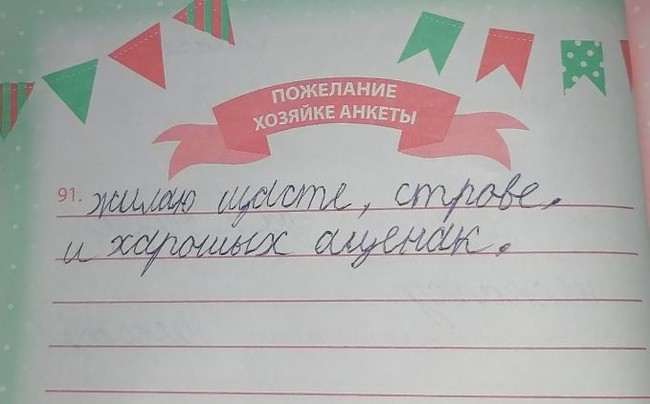 ПОЖЕЛАНИЕ
ХОЗЯЙКЕ АНКЕТЫ
91. жилаю щасте, строве,
и харошых аценак.